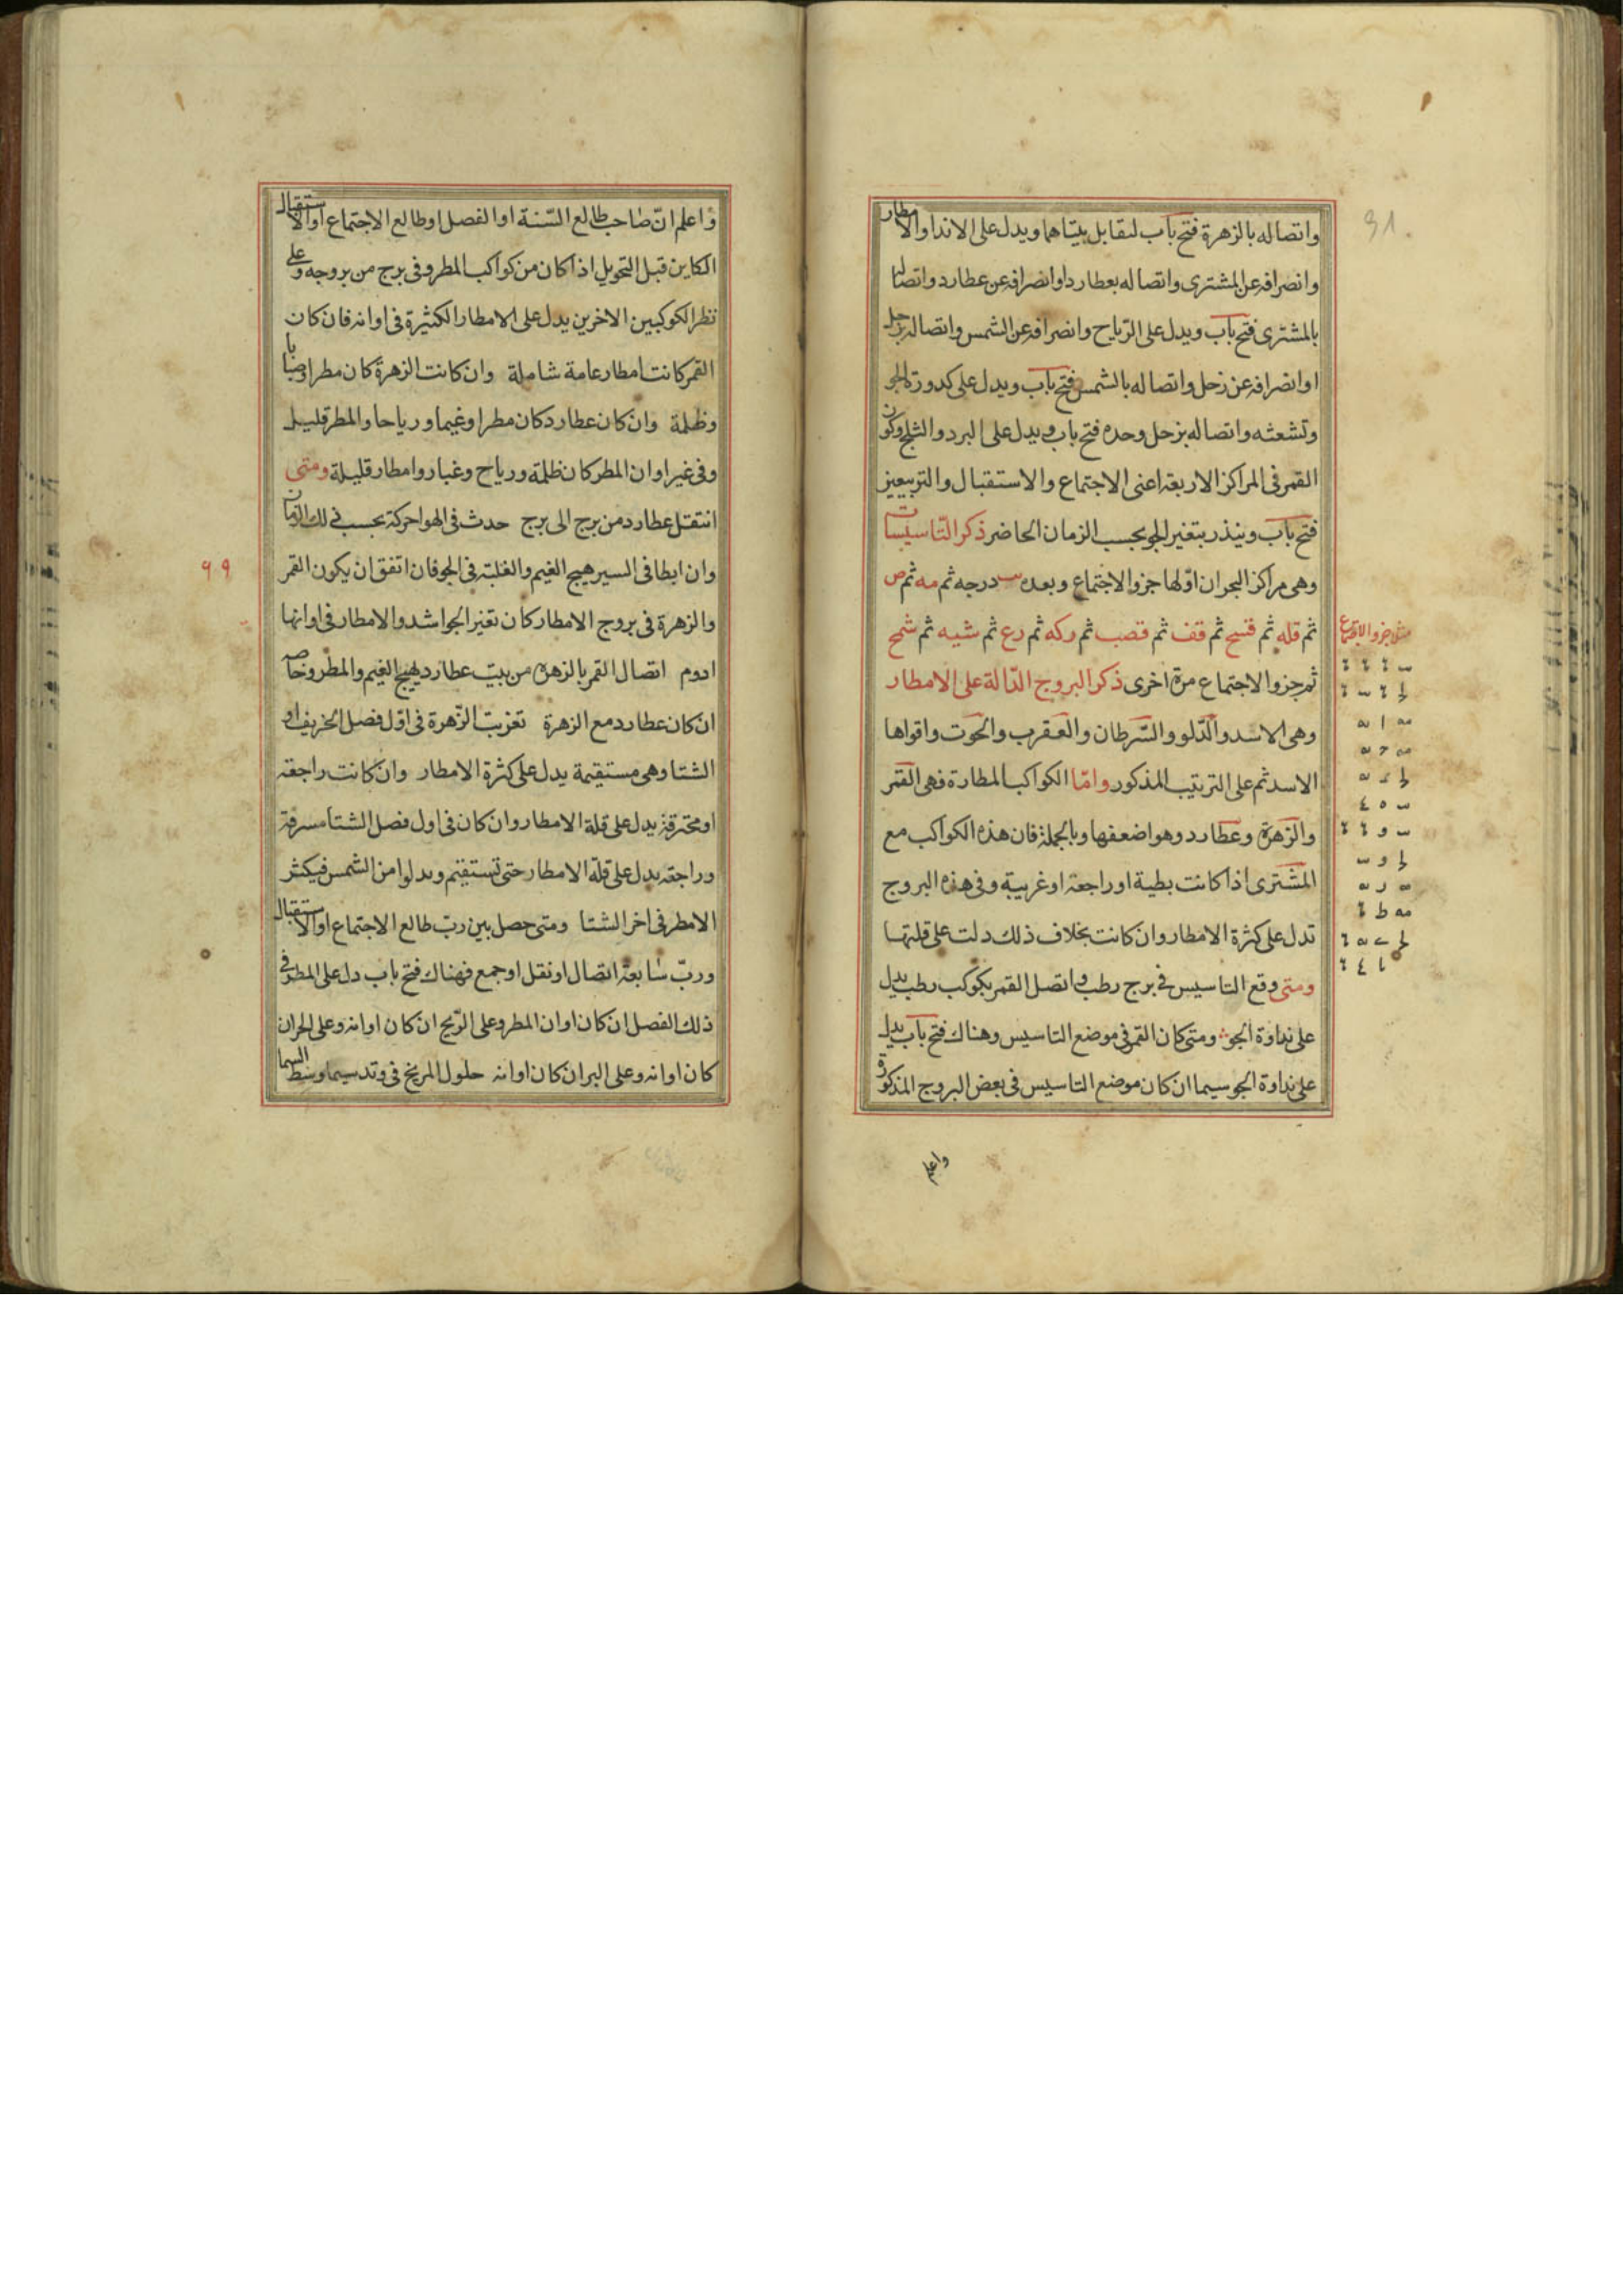 واتصاله بالزهرة فتح باب لتقابل بيتاهما ويدل على الاندا والامطار
وانصرافه عن المشترى واتصاله بعطارد او انصرافه عن عطارد واتصاله
بالمشترى فتح باب ويدل على الرّياح وانصرافه عن الشمس واتصاله بزحل
او انصرافه عن زحل واتصاله بالشمس فتح باب ويدل على كدورة الجو
وتشعثه واتصاله بزحل وحده فتح باب ويدل على البرد والثلج وكون
القمر فى المراكز الاربعة اعنى الاجتماع والاستقبال والتربيعين
فتح باب وينذر بتغير الجو بحسب الزمان الحاضر ذكر التّاسيسات
وهى مراكز البحران اوّلها جزو الاجتماع وبعده درجه ثم مه ثم ص
ثم قله ثم قسح ثم قف ثم قصب ثم ركه ثم رع ثم شيه ثم شمح
ثم جزو الاجتماع مرة اخرى ذكر البروج الدّالة على الامطار
وهى الاسد والدّلو والسّرطان والعقرب والحوت واقواها
الاسد ثم على الترتيب المذكور وامّا الكواكب المطارة فهى القمر
والزهرة وعطارد وهو اضعفها وبالجملة فان هذه الكواكب مع
المشترى اذا كانت بطية او راجعة او غربية وفى هذه البروج
تدل على كثرة الامطار وان كانت بخلاف ذلك دلت على قلتها
ومتى وقع التاسيس فى برج رطب واتصل القمر بكوكب رطب يدل
على نداوة الجو ومتى كان القمر فى موضع التاسيس وهناك فتح باب يدل
على نداوة الجو سيما ان كان موضع التاسيس فى بعض البروج المذكورة
واعلم
31.
مثلا جزو الاجتماع
واعلم انّ صاحب طالع السّنة او الفصل او طالع الاجتماع او الاستقبال
الكاين قبل التحويل اذا كان من كواكب المطر وفى برج من بروجه وعلى
نظر الكوكبين الاخرين يدل على الامطار الكثيرة فى اوانه فان كان
القمر كانت امطار عامة شاملة وان كانت الزهرة كان مطرا وضبابا
وظلمة وان كان عطارد كان مطرا وغيما ورياحا والمطر قليل
وفى غير اوان المطر كان ظلمة ورياح وغبار وامطار قليلة ومتى
انتقل عطارد من برج الى برج حدث فى الهوا حركة بحسب ذلك الزمان
وان ابطا فى السير هيج الغيم والغلبة فى الجو فان اتفق ان يكون القمر
والزهرة فى بروج الامطار كان تغير الجو اشد والامطار فى اوانها
ادوم اتصال القمر بالزهرة من بيت عطارد يهيج الغيم والمطر وخاصة
ان كان عطارد مع الزهرة تغريب الزّهرة فى اوّل فصل الخريف او
الشتا وهى مستقيمة يدل على كثرة الامطار وان كانت راجعة
او محترقة يدل على قلة الامطار وان كان فى اول فصل الشتا مشرقة
وراجعة يدل على قلّة الامطار حتى تستقيم من الشمس فيكثر
الامطر فى اخر الشتا ومتى حصل بين ربّ طالع الاجتماع او الاستقبال
وربّ سابعة اتصال او نقل او جمع فهناك فتح باب دل على المطر فى
ذلك الفصل ان كان اوان المطر وعلى الرّيح ان كان اوانه وعلى الحر ان
كان اوانه وعلى البر ان كان اوانه حلول المريخ فى وتد سيما وسط السما
٩٩